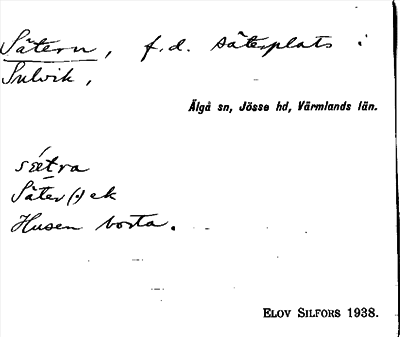 Sätern, f.d. säterplats i
Sulvik,
Älgå sn, Jösse hd, Värmlands län.
sǽtra
Säter(.)ek
Husen borta.
ELOV SILFORS 1938.